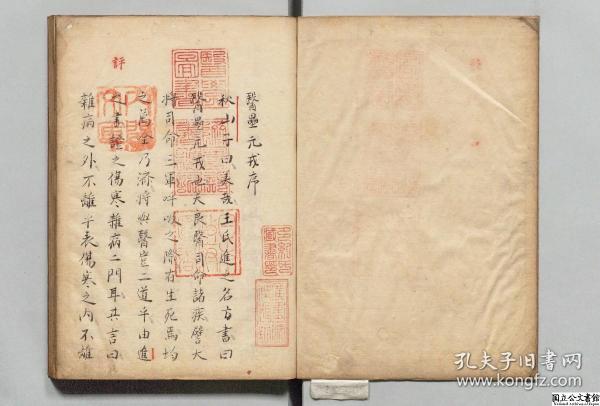 醫壘元戎序
秋山子曰美哉王氏進之名方書曰
醫壘元戎也夫良醫司命諸疾譬大
將司命三軍呼吸之際有生死焉均
之萬全乃濟將與醫豈二道乎由進
之書證之傷寒雜病二門耳其言曰
雜病之外不離乎表傷寒之内不離
評
多紀氏
藏書印
孔夫子旧书网
www.kongfz.com
国立公文書館
National Archives of Japan